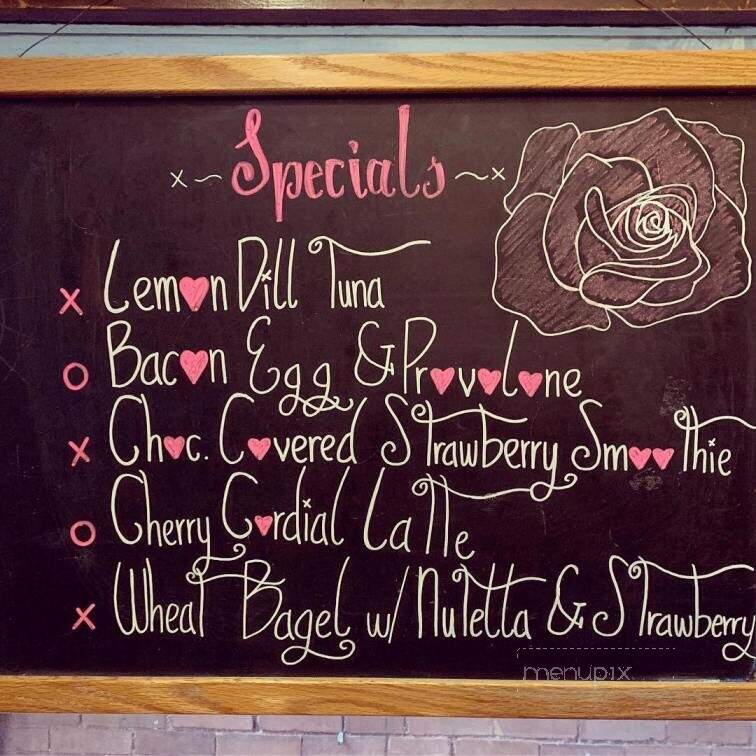 x ~ Specials ~ x
x Lemon Dill Tuna
o Bacon Egg & Provolone
x Choc. Covered Strawberry Smoothie
o Cherry Cordial Latte
x Wheat Bagel w/ Nutetta & Strawberry
menupix